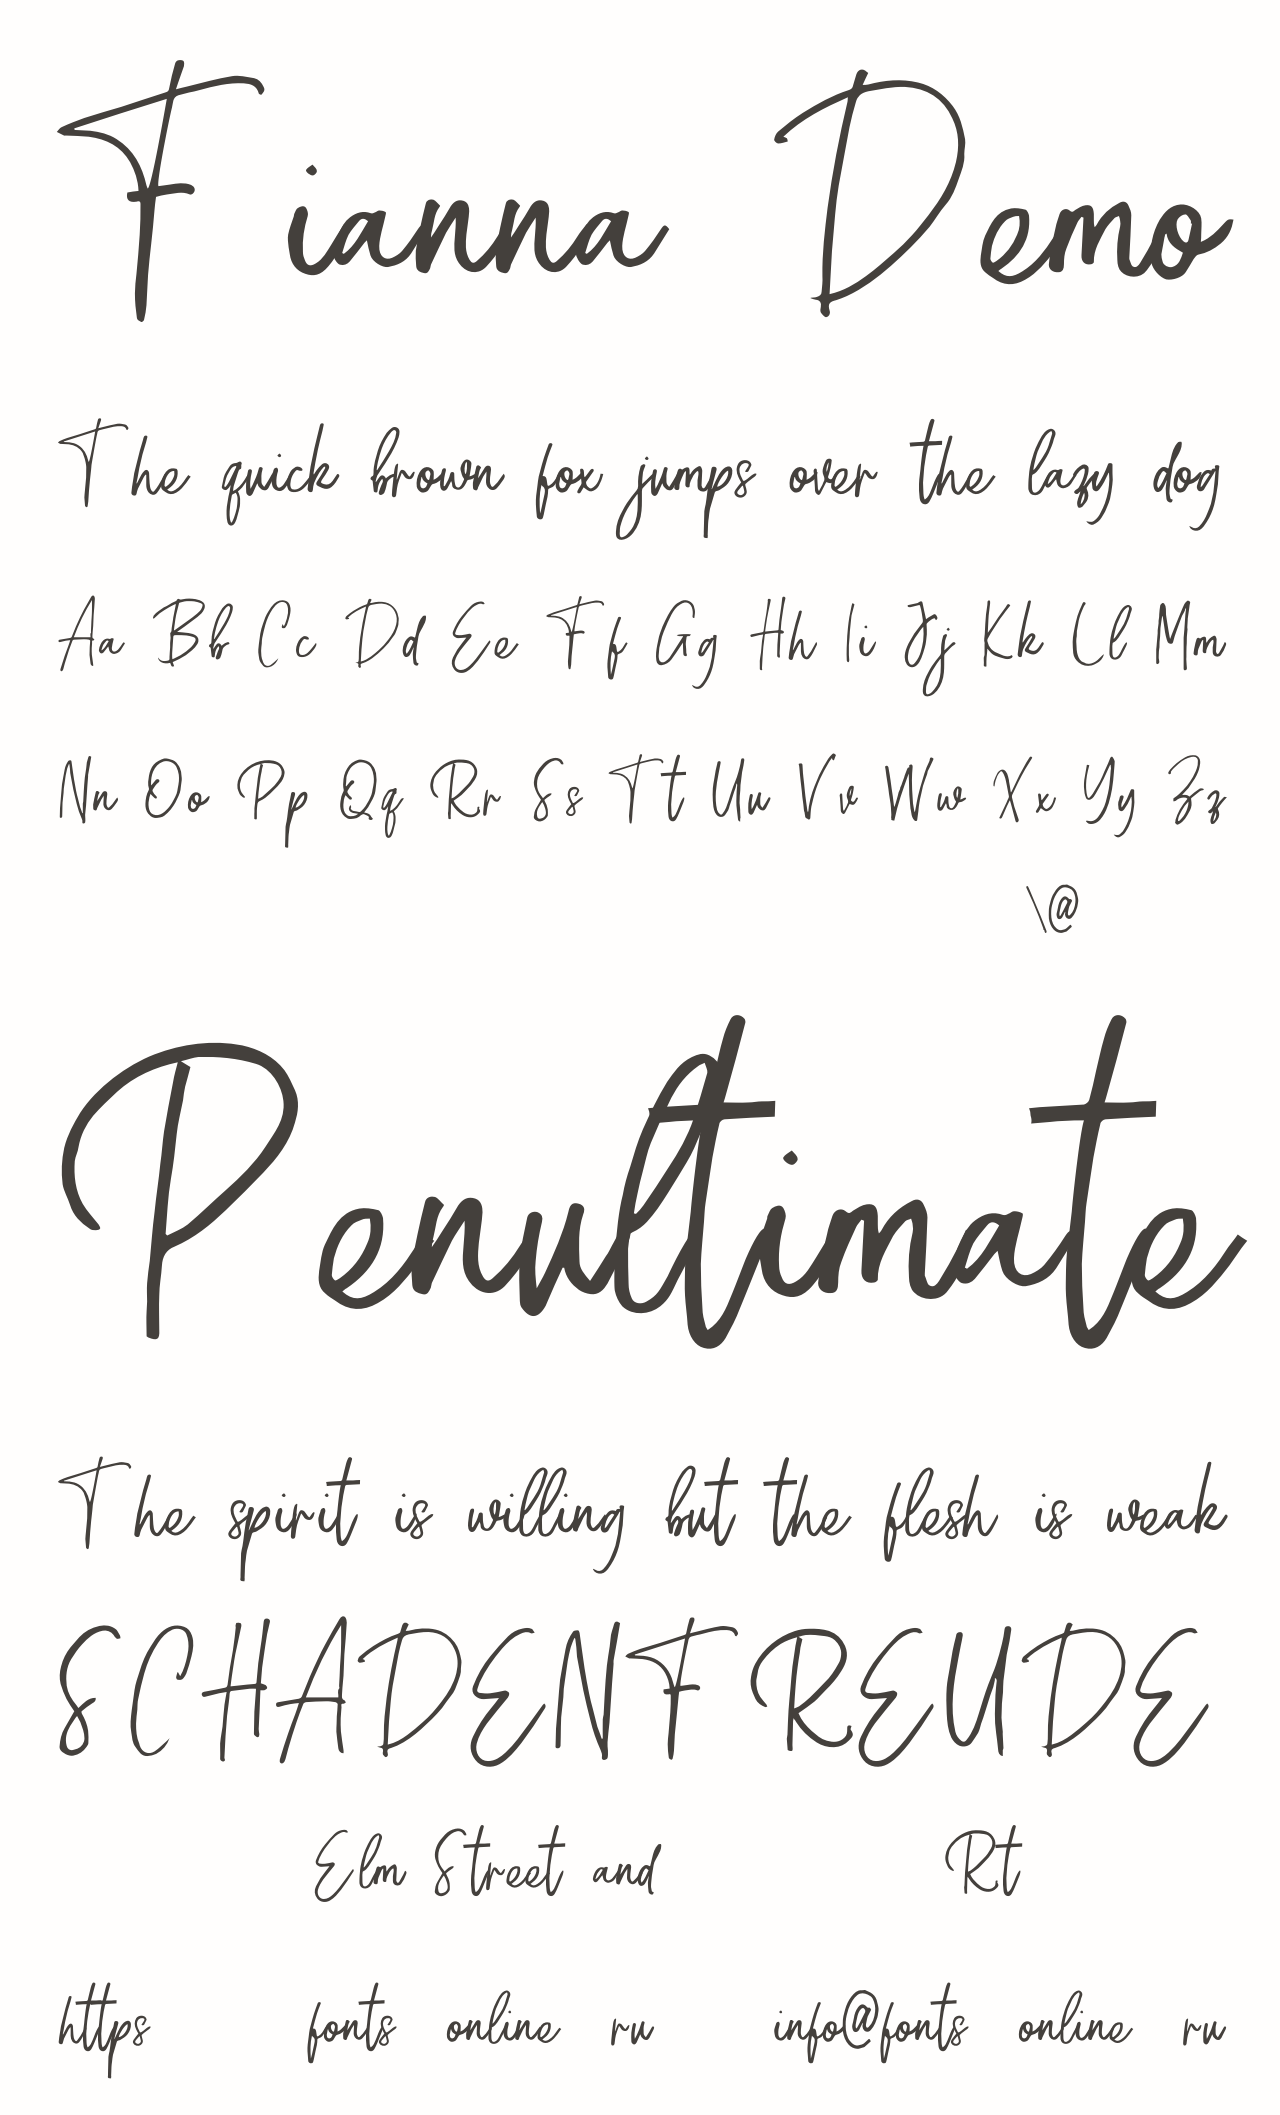 Fianna Demo
The quick brown fox jumps over the lazy dog
Aa Bb Cc Dd Ee Ff Gg Hh Ii Jj Kk Ll Mm
Nn Oo Pp Qq Rr Ss Tt Uu Vv Ww Xx Yy Zz
\@
Penultimate
The spirit is willing but the flesh is weak
SCHADENFREUDE
Elm Street and Rt
https fonts online ru info@fonts online ru